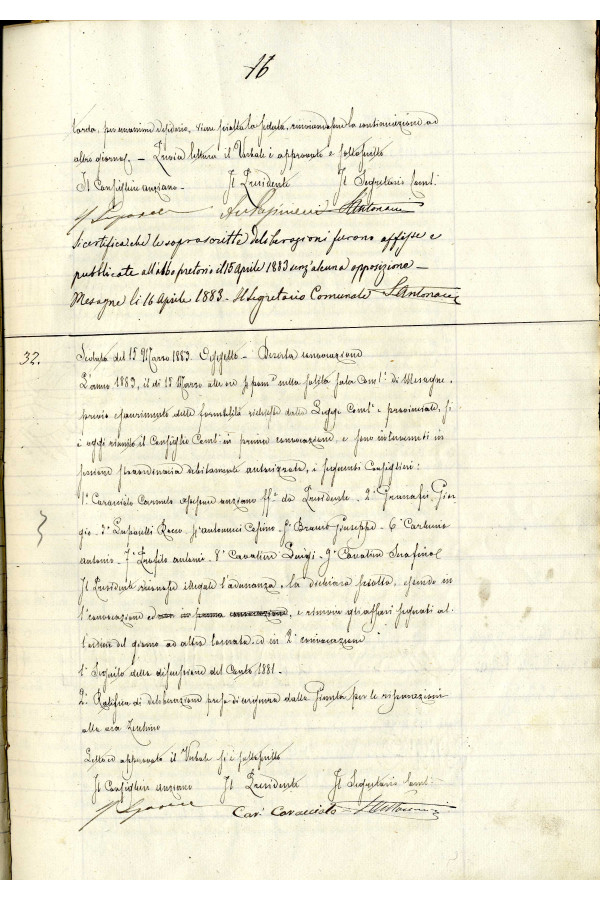 16
tarda, per unanime desiderio, viene sciolta la seduta, rinviandone la continuazione ad
altro giorno. — Previa lettura il Verbale è approvato e sottoscritto
Il Consigliere anziano — Il Presidente Il Segretario Coml.
S. Antonacci
Si certifica che le soprascritte deliberazioni furono affisse e
pubblicate all'albo pretorio il 15 aprile 1883 senz'alcuna opposizione —
Mesagne li 16 Aprile 1883 — Il Segretario Comunale S. Antonacci
32.
Seduta del 15 Marzo 1883. Oggetto — Deserta convocazione
L'anno 1883, il dì 15 Marzo alle ore pomne nella solita sala Comle di Mesagne,
previo esaurimento delle formalità richieste dalla Legge Comle e provinciale, si
è oggi riunito il Consiglio Comle in prima convocazione, e sono intervenuti in
sessione straordinaria debitamente autorizzata, i seguenti Consiglieri:
1° Caracciolo Carmelo assessore anziano ff. da Presidente — 2° Granafei Gior
gio — 3° Rocco — Antonucci — Giuseppe — 6°
Antonio — 7° Profilo Antonio — 8° Cavaliere Luigi — 9° Cavaliere Serafino
Il Presidente riconosciuta illegale l'adunanza, la dichiara sciolta, essendo in
1a convocazione ed in prima convocazione, e rimanda gli affari segnati al
l'ordine del giorno ad altra tornata ed in 2a convocazione
1° Seguito della discussione del Conto 1881 —
2° Ratifica di deliberazione presa di urgenza dalla Giunta per le riparazioni
alla
Letto ed approvato il Verbale si è sottoscritto
Il Consigliere anziano Il Presidente Il Segretario Coml.
Car. Caracciolo S. Antonacci